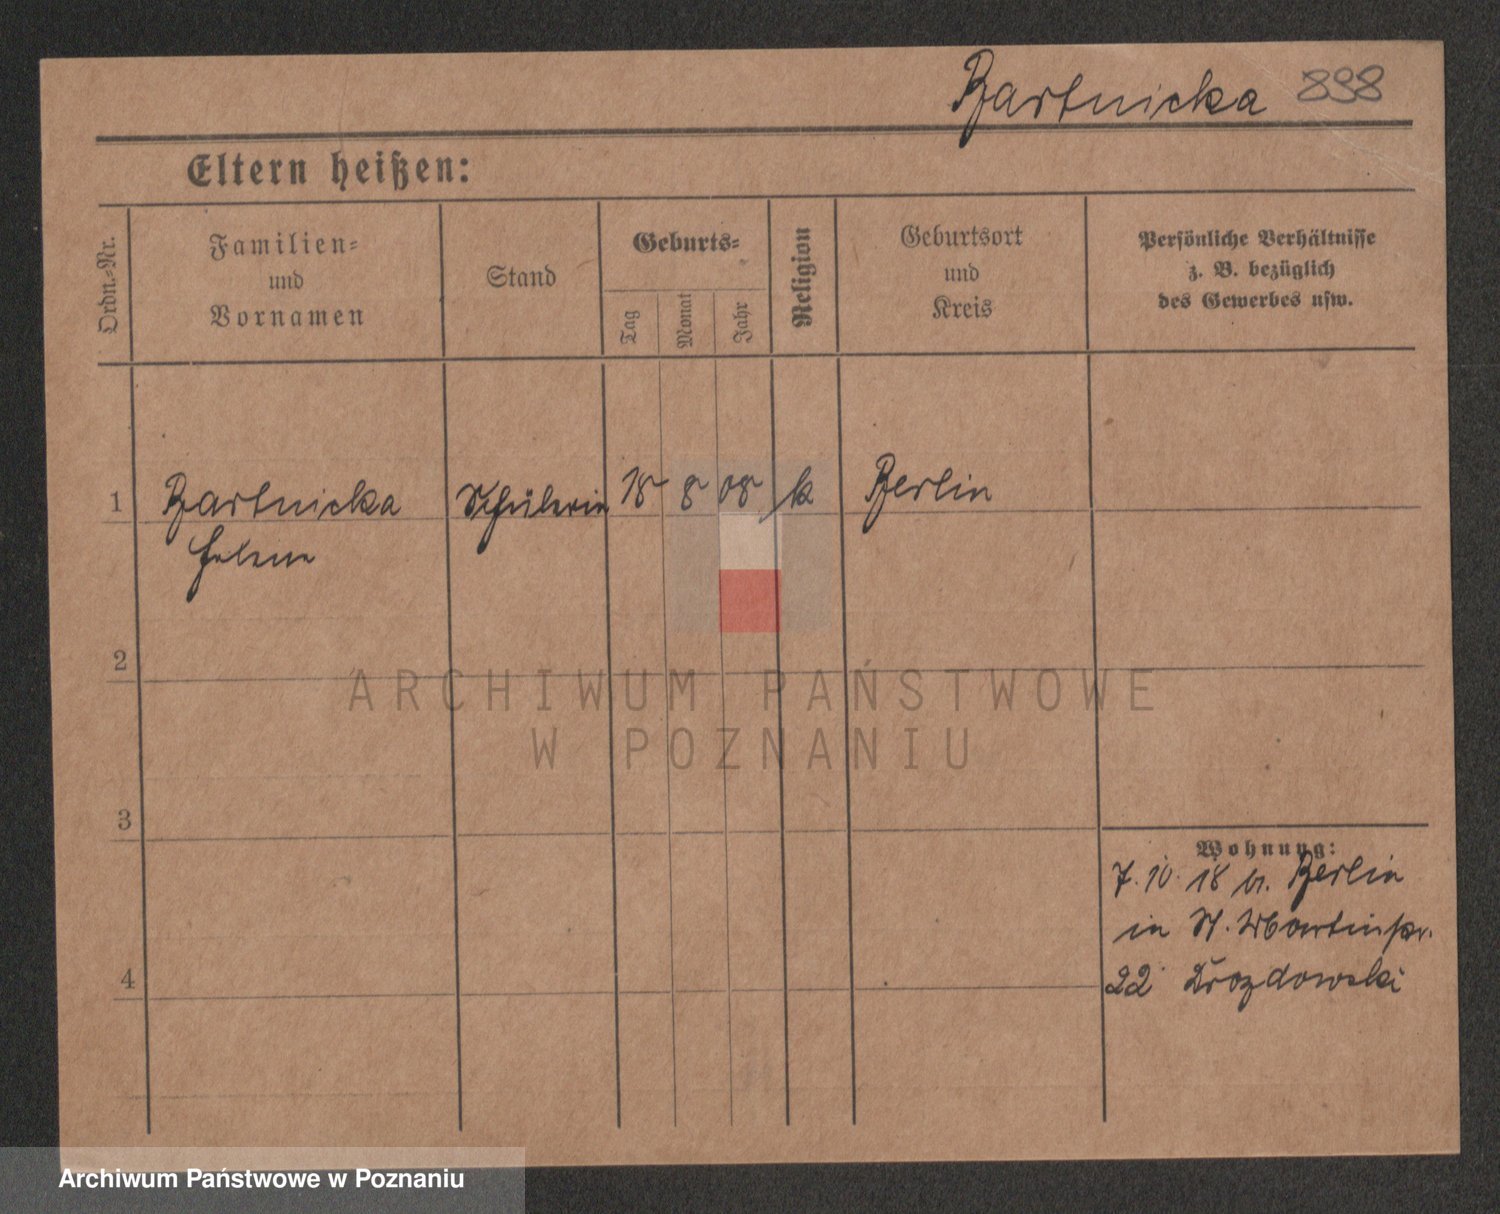 Bartnicka 898
Eltern heißen:
Ordn.-Nr.
Familien-
und
Vornamen
Stand
Geburts-
Tag
Monat
Jahr
Religion
Geburtsort
und
Kreis
Persönliche Verhältnisse
z. B. bezüglich
des Gewerbes usw.
1 Bartnicka Schülerin 18 8 08 k Berlin
Helene
2
3
4
Wohnung:
7. 10. 18 v. Berlin
in St. Martinstr.
22 Drozdowski
ARCHIWUM PAŃSTWOWE
W POZNANIU
Archiwum Państwowe w Poznaniu